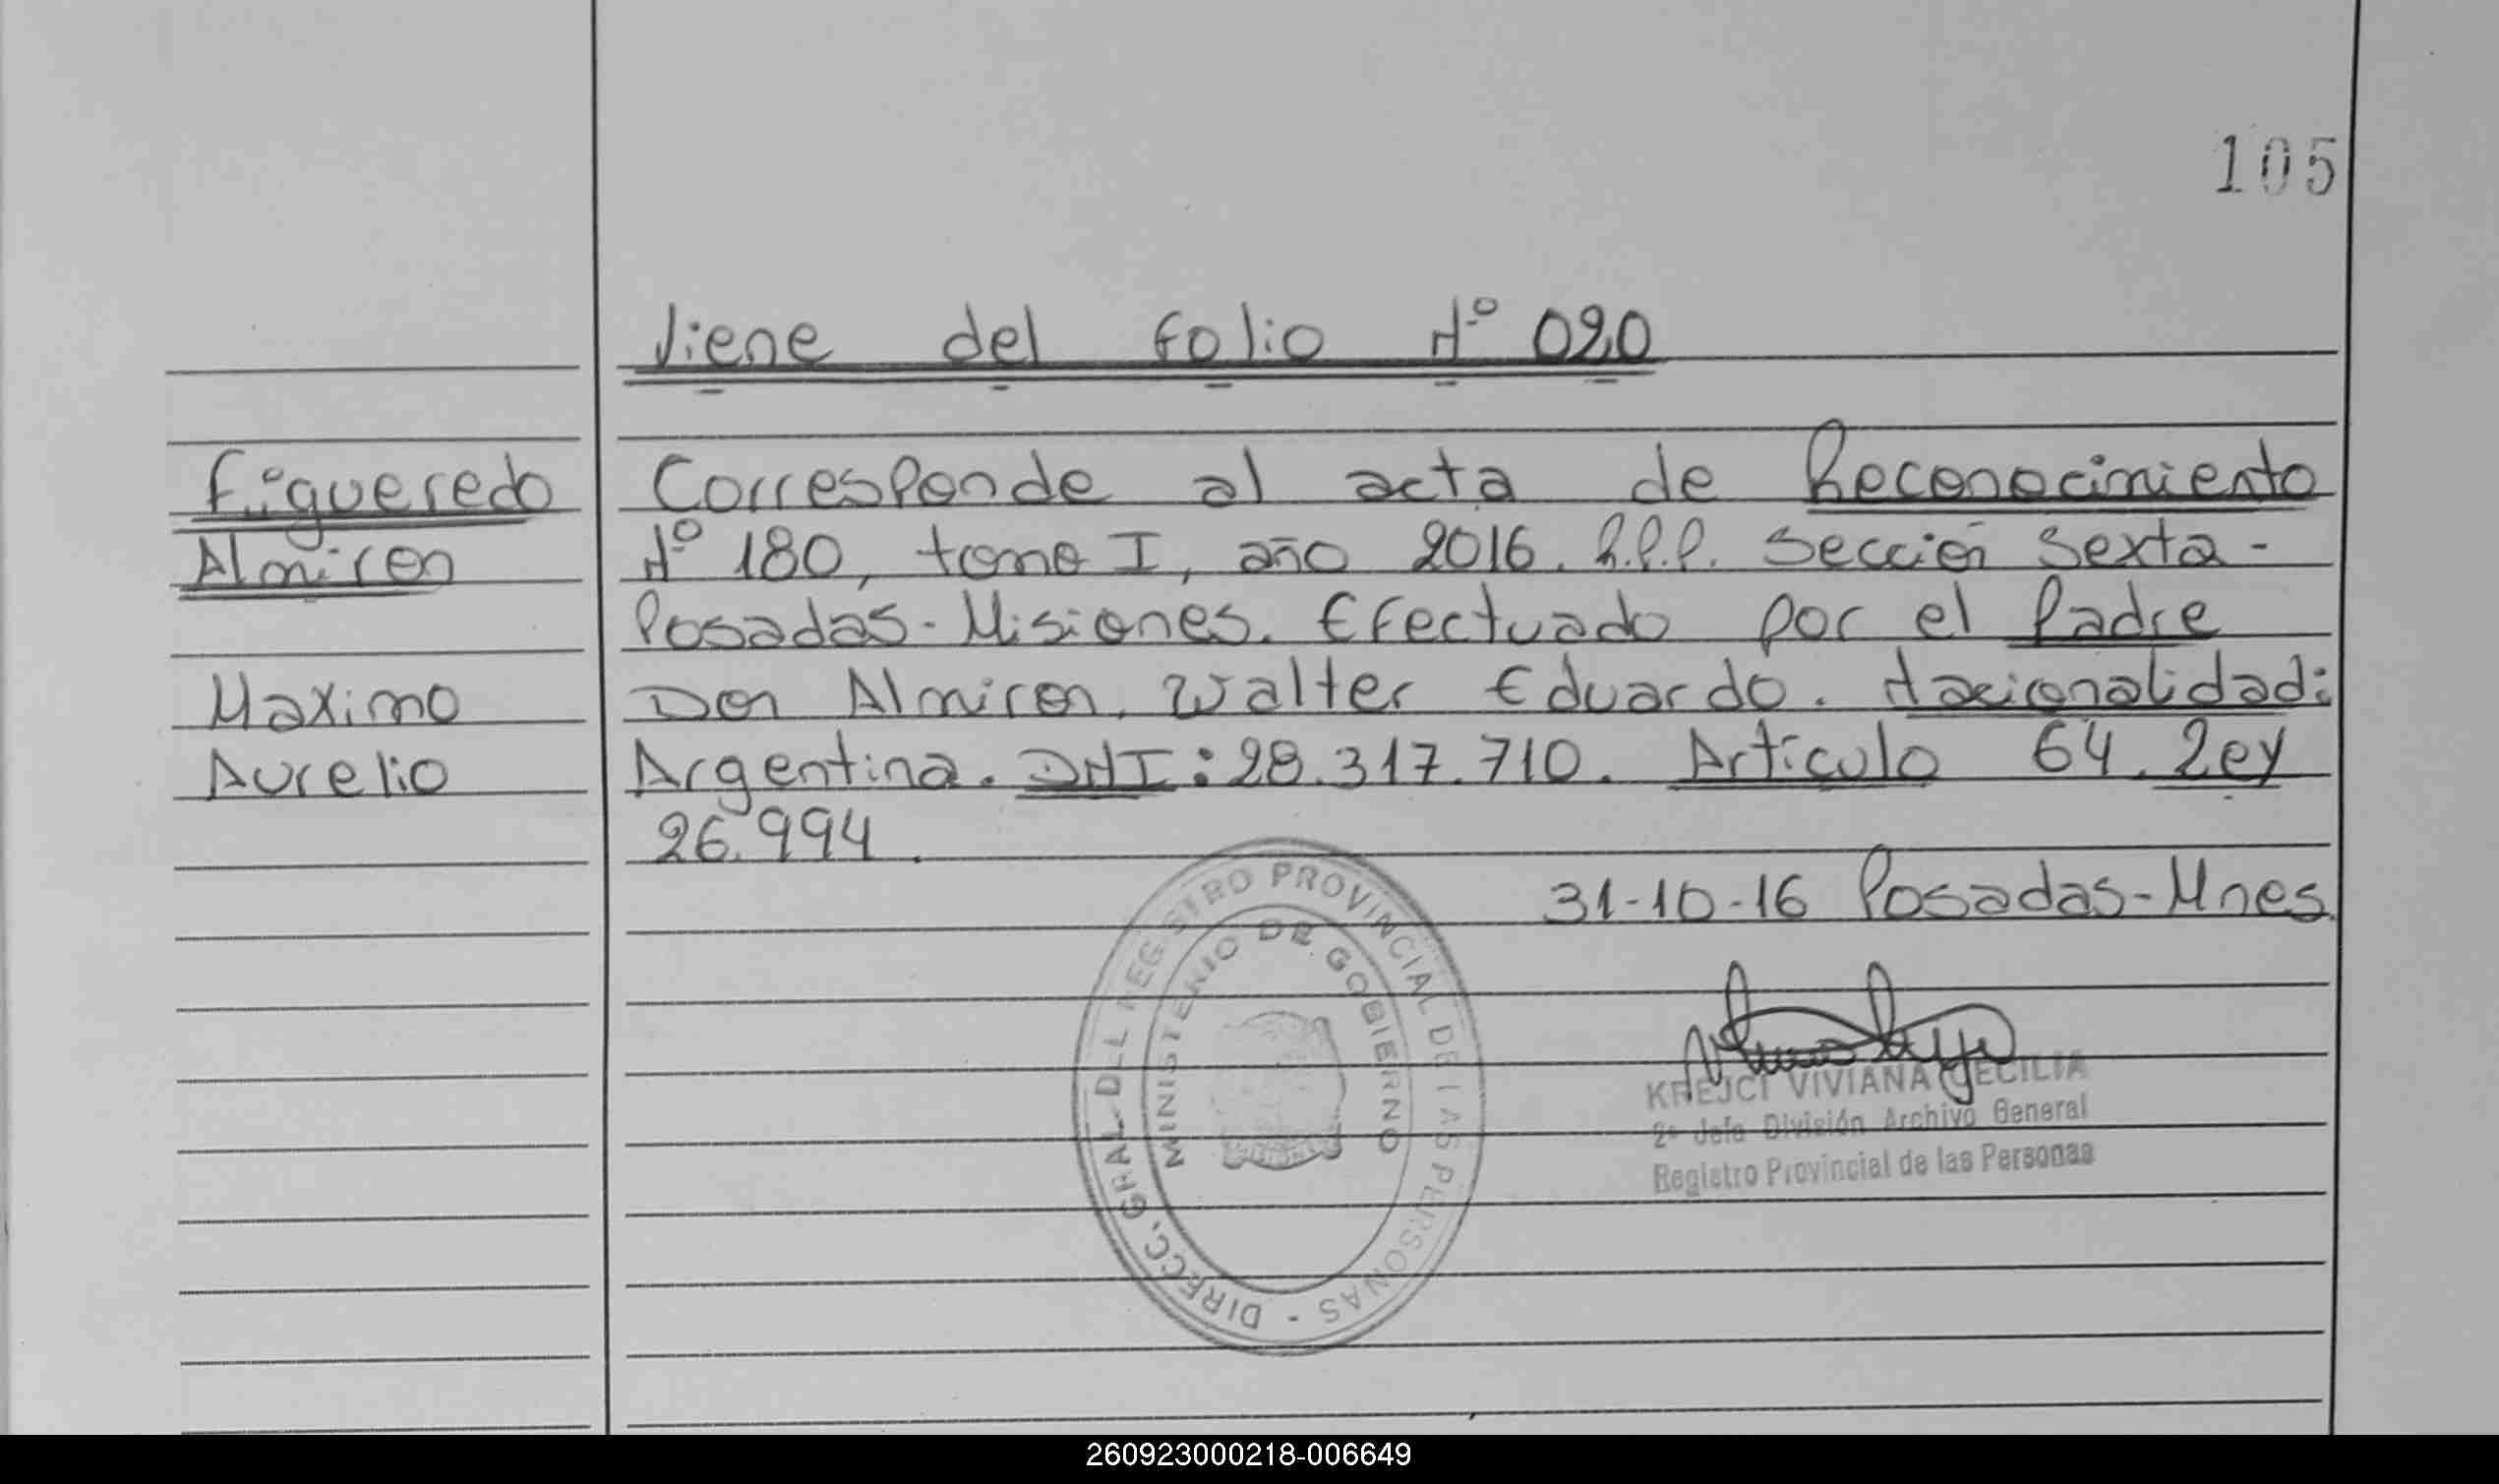 105
Viene del folio Nº 020
Figueredo
Almiron
Maximo
Aurelio
Corresponde al acta de Reconocimiento
Nº 180, tomo I, año 2016. R.P.P. Sección Sexta -
Posadas - Misiones. Efectuado por el Padre
Don Almiron, Walter Eduardo. Nacionalidad:
Argentina. DNI: 28.317.710. Artículo 64. Ley
26.994.
31-10-16 Posadas - Mnes.
DIRECC. GRAL. DEL REGISTRO PROVINCIAL DE LAS PERSONAS -
MINISTERIO DE GOBIERNO
KREJCI VIVIANA CECILIA
2º Jefa División Archivo General
Registro Provincial de las Personas
260923000218-006649